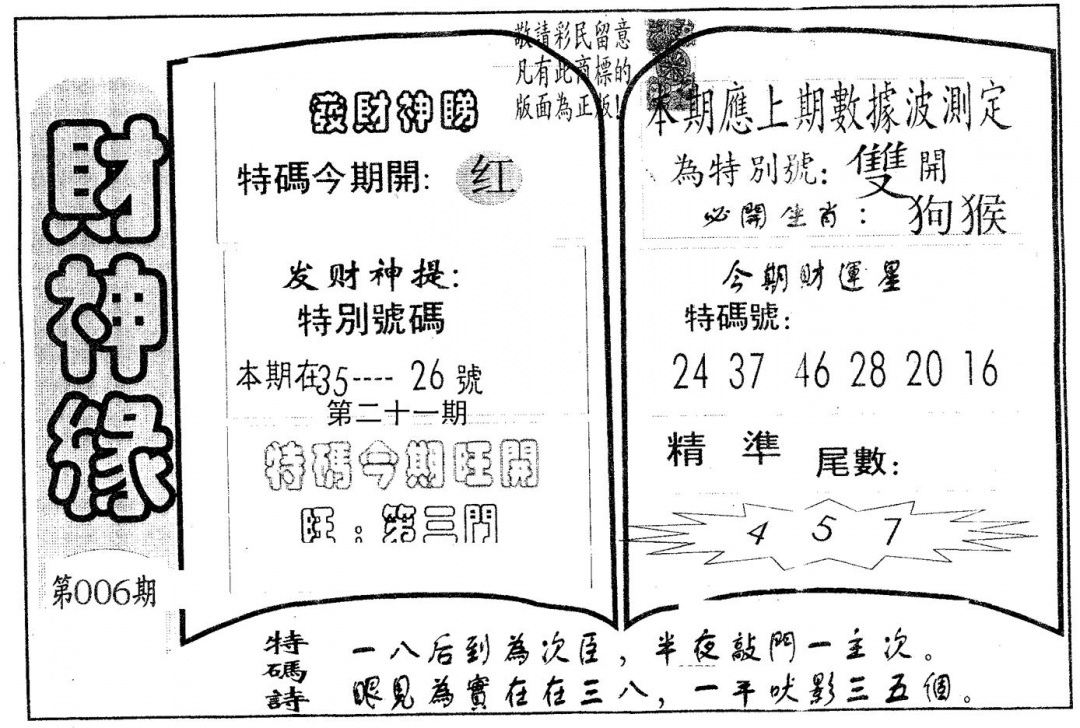 財神緣
第006期
敬請彩民留意
凡有此商標的
版面為正版!
發財神睇
特碼今期開: 红
发财神提:
特別號碼
本期在35---- 26號
第二十一期
特碼今期旺開
旺:第三門
本期應上期數據波測定
為特別號: 雙開
必開生肖: 狗猴
今期財運星
特碼號:
24 37 46 28 20 16
精準 尾數:
4 5 7
特碼詩
一八后到為次臣,半夜敲門一主次。
眼見為實在在三八,一平吠影三五個。